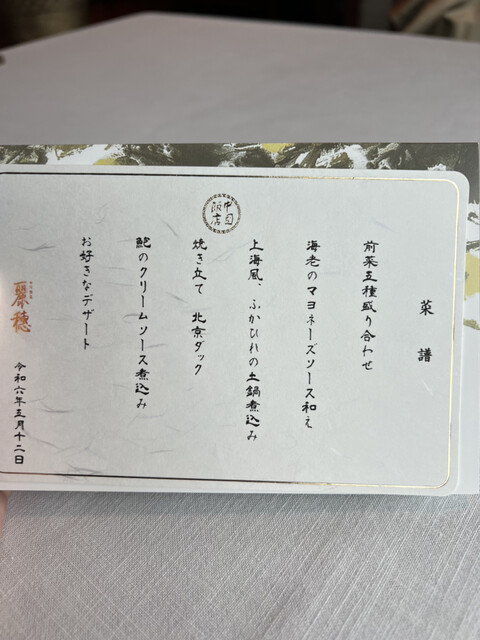 菜譜
前菜五種盛り合わせ
海老のマヨネーズソース和え
上海風、ふかひれの土鍋煮込み
中国飯店
焼き立て 北京ダック
鮑のクリームソース煮込み
お好きなデザート
麗穂
令和六年五月十二日